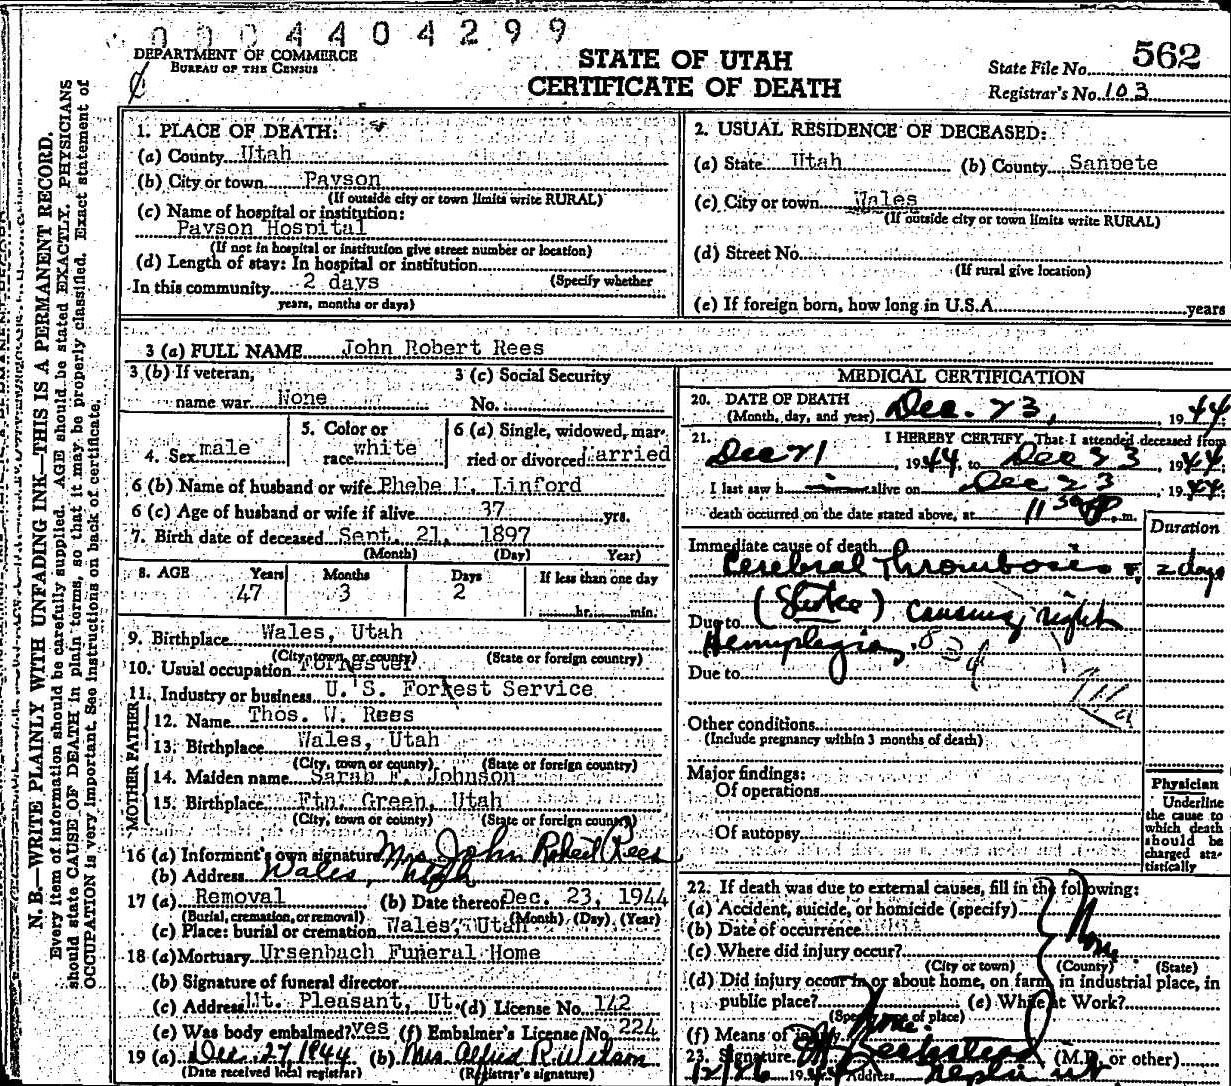 0004404299
DEPARTMENT OF COMMERCE
BUREAU OF THE CENSUS
STATE OF UTAH
CERTIFICATE OF DEATH
State File No. 562
Registrar's No. 103
N. B.—WRITE PLAINLY WITH UNFADING INK—THIS IS A PERMANENT RECORD.
Every item of information should be carefully supplied. AGE should be stated EXACTLY. PHYSICIANS
should state CAUSE OF DEATH in plain terms, so that it may be properly classified. Exact statement of
OCCUPATION is very important. See instructions on back of certificate.
1. PLACE OF DEATH:
(a) County Utah
(b) City or town Payson
(If outside city or town limits write RURAL)
(c) Name of hospital or institution:
Payson Hospital
(If not in hospital or institution give street number or location)
(d) Length of stay: In hospital or institution
(Specify whether
In this community 2 days
years, months or days)
2. USUAL RESIDENCE OF DECEASED:
(a) State Utah (b) County Sanpete
(c) City or town Wales
(If outside city or town limits write RURAL)
(d) Street No.
(If rural give location)
(e) If foreign born, how long in U.S.A. years
3 (a) FULL NAME John Robert Rees
3 (b) If veteran,
name war None
3 (c) Social Security
No.
4. Sex male
5. Color or
race white
6 (a) Single, widowed, mar-
ried or divorced Married
6 (b) Name of husband or wife Phebe M. Linford
6 (c) Age of husband or wife if alive 37 yrs.
7. Birth date of deceased Sept. 21, 1897
(Month) (Day) Year)
8. AGE Years Months Days If less than one day
47 3 2 hr. min.
9. Birthplace Wales, Utah
(City, town or county) (State or foreign country)
10. Usual occupation Forrester
11. Industry or business U. S. Forrest Service
FATHER
12. Name Thos. W. Rees
13. Birthplace Wales, Utah
(City, town or county) (State or foreign country)
MOTHER
14. Maiden name Sarah E. Johnson
15. Birthplace Ftn. Green, Utah
(City, town or county) (State or foreign country)
16 (a) Informent's own signature Mrs John Robert Rees
(b) Address Wales, Utah
17 (a) Removal (b) Date thereof Dec. 23, 1944
(Burial, cremation, or removal) (Month) (Day) (Year)
(c) Place: burial or cremation Wales, Utah
18 (a) Mortuary Ursenbach Funeral Home
(b) Signature of funeral director
(c) Address Mt. Pleasant, Ut. (d) License No. 142
(e) Was body embalmed? yes (f) Embalmer's License No. 224
19 (a) Dec 27 1944 (b) Mrs. Alfred R. Wilson
(Date received local registrar) (Registrar's signature)
MEDICAL CERTIFICATION
20. DATE OF DEATH
(Month, day, and year) Dec. 23, 1944
21. I HEREBY CERTIFY, That I attended deceased from
Dec 21, 1944, to Dec 23 1944
I last saw h im alive on Dec 23, 1944
death occurred on the date stated above, at 11 30 P. m.
Duration
Immediate cause of death
Cerebral Thrombosis 2 days
(Stroke) causing right
Due to
Hemiplegia
Due to
Other conditions
(Include pregnancy within 3 months of death)
Major findings:
Of operations
Of autopsy
Physician
Underline
the cause to
which death
should be
charged sta-
tistically
22. If death was due to external causes, fill in the following:
(a) Accident, suicide, or homicide (specify)
(b) Date of occurrence
None
(c) Where did injury occur?
(City or town) (County) (State)
(d) Did injury occur in or about home, on farm in industrial place, in
public place? (e) While at Work?
(Specify type of place)
(f) Means of injury None.
23. Signature (M.D. or other)
12/26 1944 Address Nephi Ut